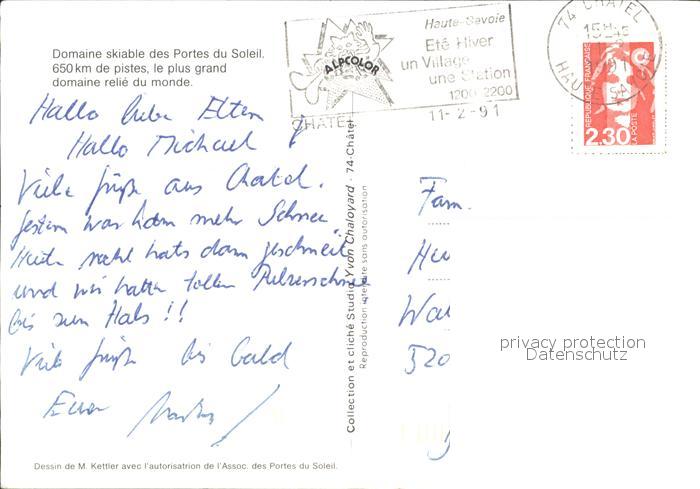 Domaine skiable des Portes du Soleil.
650 km de pistes, le plus grand
domaine relié du monde.
Haute-Savoie
Eté Hiver
un Village
une Station
1200-2200
ALPCOLOR
CHATEL
11-2-91
74 CHATEL
HAUTE
REPUBLIQUE FRANÇAISE
2,30
LA POSTE
Hallo liebe Eltern
Hallo Michael
Viele Grüße aus Chatel.
Gestern war kaum mehr Schnee
Heute nacht hats dann geschneit
und wir hatten tollen Pulverschnee
bis zum Hals !!
Viele Grüße bis bald
Euer
Fam.
Wa
520
Collection et cliché Studio Yvon Chaloyard - 74-Châtel
Reproduction interdite sans autorisation
privacy protection
Datenschutz
Dessin de M. Kettler avec l'autorisation de l'Assoc. des Portes du Soleil.